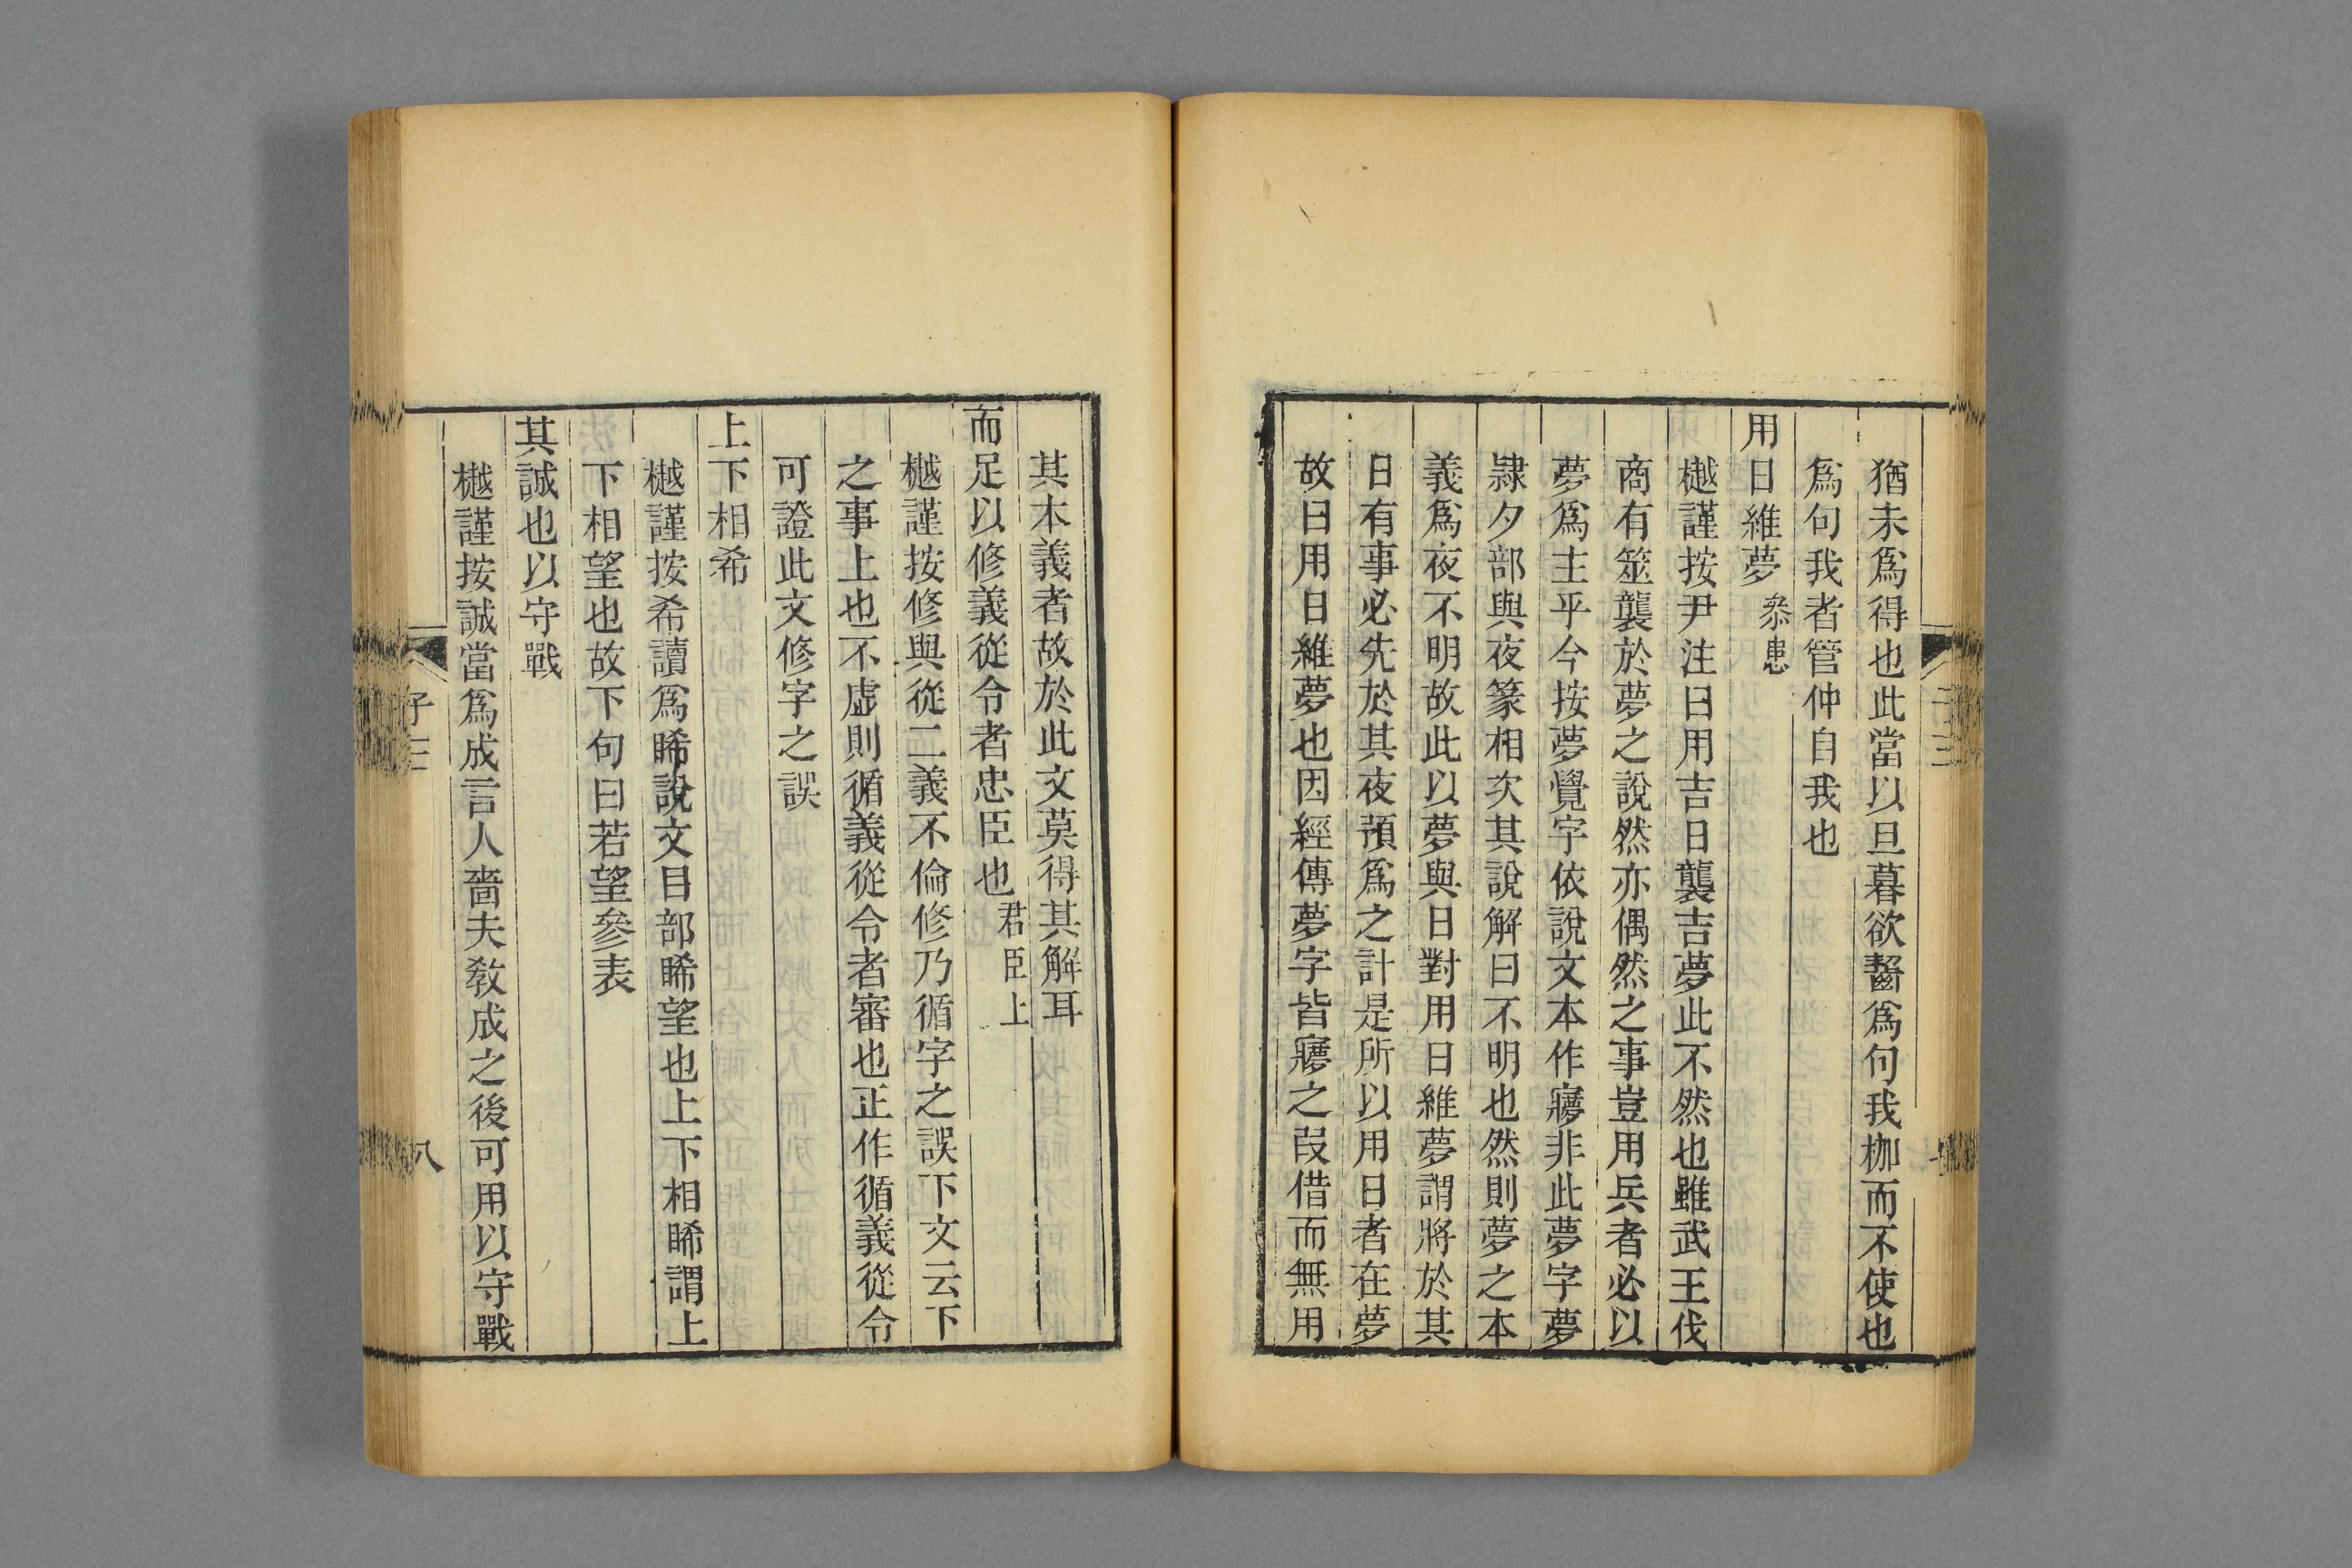 猶未爲得也此當以旦暮欲齧爲句我枷而不使也
爲句我者管仲自我也
用日維夢 叅患
樾謹按尹注曰用吉日襲吉夢此不然也雖武王伐
商有筮襲於夢之說然亦偶然之事豈用兵者必以
夢爲主乎今按夢覺字依說文本作㝱非此夢字夢
隷夕部與夜篆相次其說解曰不明也然則夢之本
義爲夜不明故此以夢與日對用日維夢謂將於其
日有事必先於其夜預爲之計是所以用日者在夢
故曰用日維夢也因經傳夢字皆㝱之叚借而無用
其本義者故於此文莫得其解耳
而足以修義從令者忠臣也 君臣上
樾謹按修與從二義不倫修乃循字之誤下文云下
之事上也不虛則循義從令者審也正作循義從令
可證此文修字之誤
上下相希
樾謹按希讀爲睎說文目部睎望也上下相睎謂上
下相望也故下句曰若望參表
其誠也以守戰
樾謹按誠當爲成言人嗇夫敎成之後可用以守戰
八